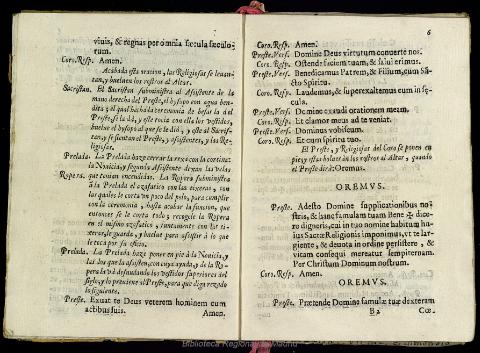 viuis, & regnas per omnia sæcula sæculo-
rum.
Coro. Resp. Amen.
Acabada esta oracion, las Religiosas se leuan-
tan, y bueluen los rostros al Altar.
Sacristan. El Sacristan subministra al Assistente de la
mano derecha del Preste, el hysopo con agua ben-
dita; el qual hecha la ceremonia de besar la del
Preste, se la dà, y este rocia con ella los vestidos,
buelue el hysopo al que se le diò, y este al Sacris-
tan, y se sientan el Preste, y assistentes, y las Re-
ligiosas.
Prelada. La Prelada haze cerrar la rexa con la cortina:
la Nouicia, y segunda Assistente dexan las velas
Ropera. que tenian encendidas. La Ropera subministra
à la Prelada el azafatico con las tixeras, con
las quales le corta vn poco del pelo, para cumplir
con la ceremonia, hasta acabar la funcion, que
entonces se le corta todo; recogele la Ropera
en el mismo azafatico, y juntamente con las ti-
xeras, le guarda, y buelue para assistir à lo que
le toca por su oficio.
Prelada. La Prelada haze poner en piè à la Nouicia, y
las dos que la assisten, con cuya ayuda, y de la Ro-
pera la và desnudando los vestidos superiores del
siglo, y lo preuiene al Preste, para que diga rezado
lo siguiente.
Preste. Exuat te Deus veterem hominem cum
actibus suis. Amen.
6
Coro. Resp. Amen.
Preste. Vers. Domine Deus virtutum conuerte nos.
Coro. Resp. Ostende faciem tuam, & salui erimus.
Preste. Vers. Benedicamus Patrem, & Filium, cum Sã-
cto Spiritu.
Coro. Resp. Laudemus, & superexaltemus eum in sę-
cula.
Preste. Vers. Domine exaudi orationem meam.
Coro. Resp. Et clamor meus ad te veniat.
Preste. Vers. Dominus vobiscum.
Coro. Resp. Et cum spiritu tuo.
El Preste, y Religiosas del Coro se ponen en
pie, y estas bolueràn los rostros al Altar, quando
el Preste dirà: Oremus.
OREMVS.
Preste. Adesto Domine supplicationibus no-
stris, & hanc famulam tuam bene ✠ dice-
re digneris, cui in tuo nomine habitum hu-
ius Sacræ Religionis imponimus, vt te lar-
giente, & deuota in ordine persistere, &
vitam consequi mereatur sempiternam.
Per Christum Dominum nostrum.
Coro. Resp. Amen.
OREMVS.
Preste. Prætende Domine famulæ tuæ dexteram
B2 Cœ-
Biblioteca Regional de Madrid